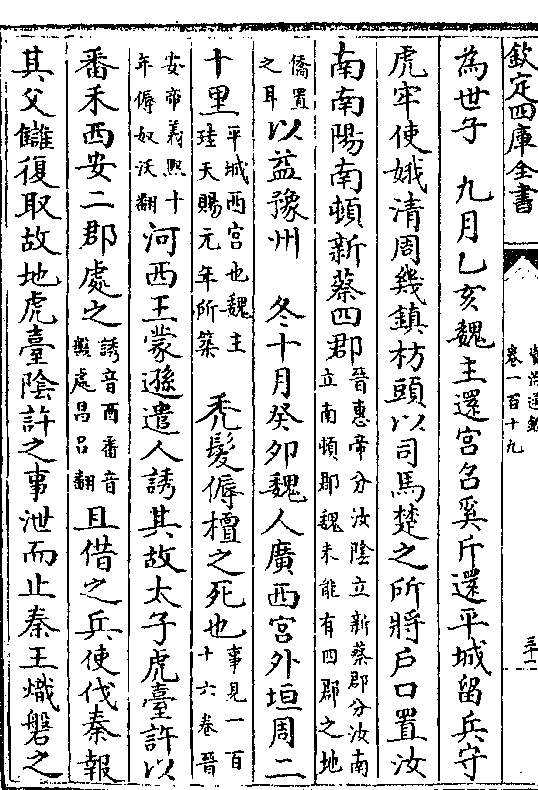 欽定四庫全書
資治通鑑
卷一百十九
三十一
為世子 九月乙亥魏主還宮召奚斤還平城留兵守
虎牢使娥清周幾鎮枋頭以司馬楚之所將戶口置汝
南南陽南頓新蔡四郡晉惠帝分汝陰立新蔡郡分汝南立南頓郡魏未能有四郡之地
僑置之耳以益豫州 冬十月癸卯魏人廣西宮外垣周二
十里平城西宮也魏主珪天賜元年所築 禿髮傉檀之死也事見一百十六卷晉
安帝義熙十年傉奴沃翻河西王蒙遜遣人誘其故太子虎臺許以
番禾西安二郡處之誘音酉番音盤處昌呂翻且借之兵使伐秦報
其父讎復取故地虎臺陰許之事泄而止秦王熾磐之